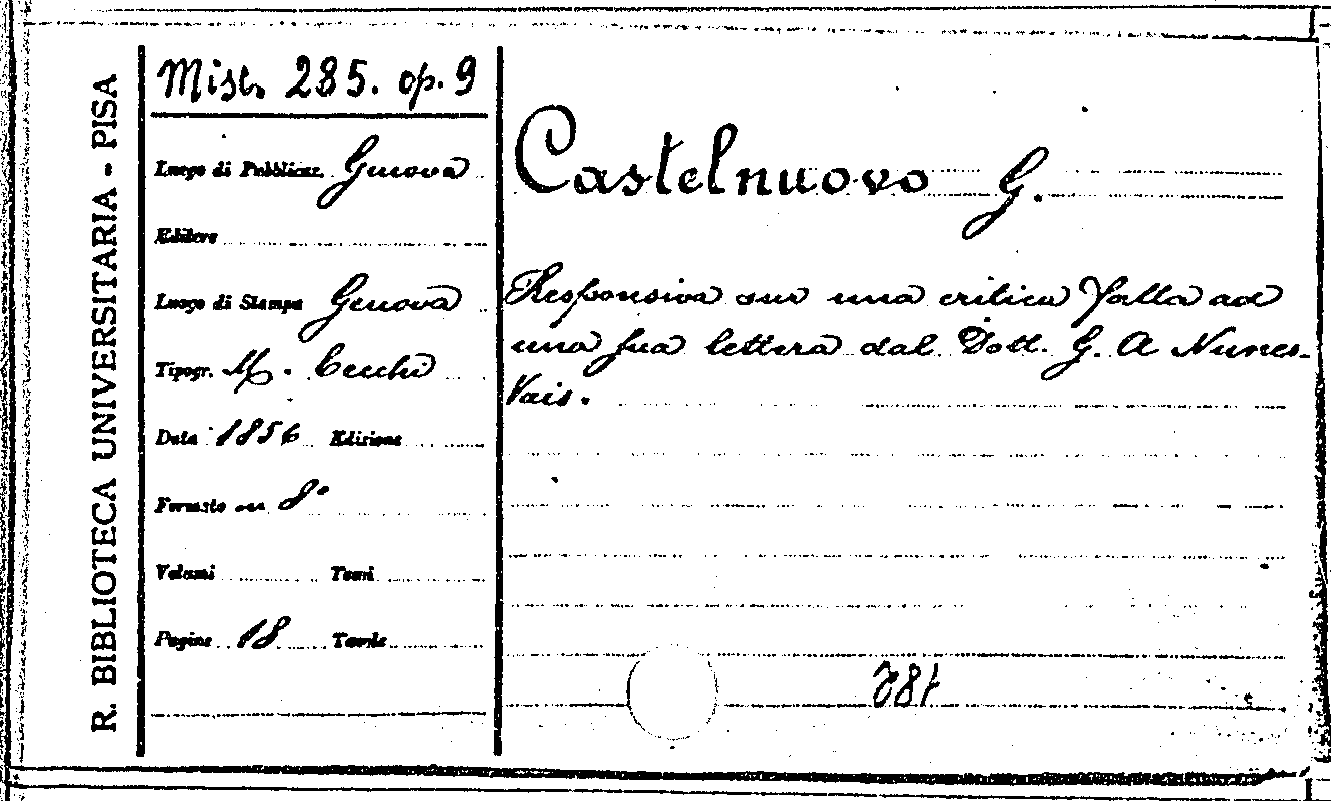 R. BIBLIOTECA UNIVERSITARIA - PISA
Misc. 285. op. 9
Luogo di Pubblicaz. Genova
Editore
Luogo di Stampa Genova
Tipogr. M. Cecchi
Data 1856 Edizione
Formato in 8°
Volumi Tomi
Pagine 18 Tavole
Castelnuovo G.
Responsiva sur una critica fatta ad
una sua lettera dal Dott. G. A Nunes-
Vais.